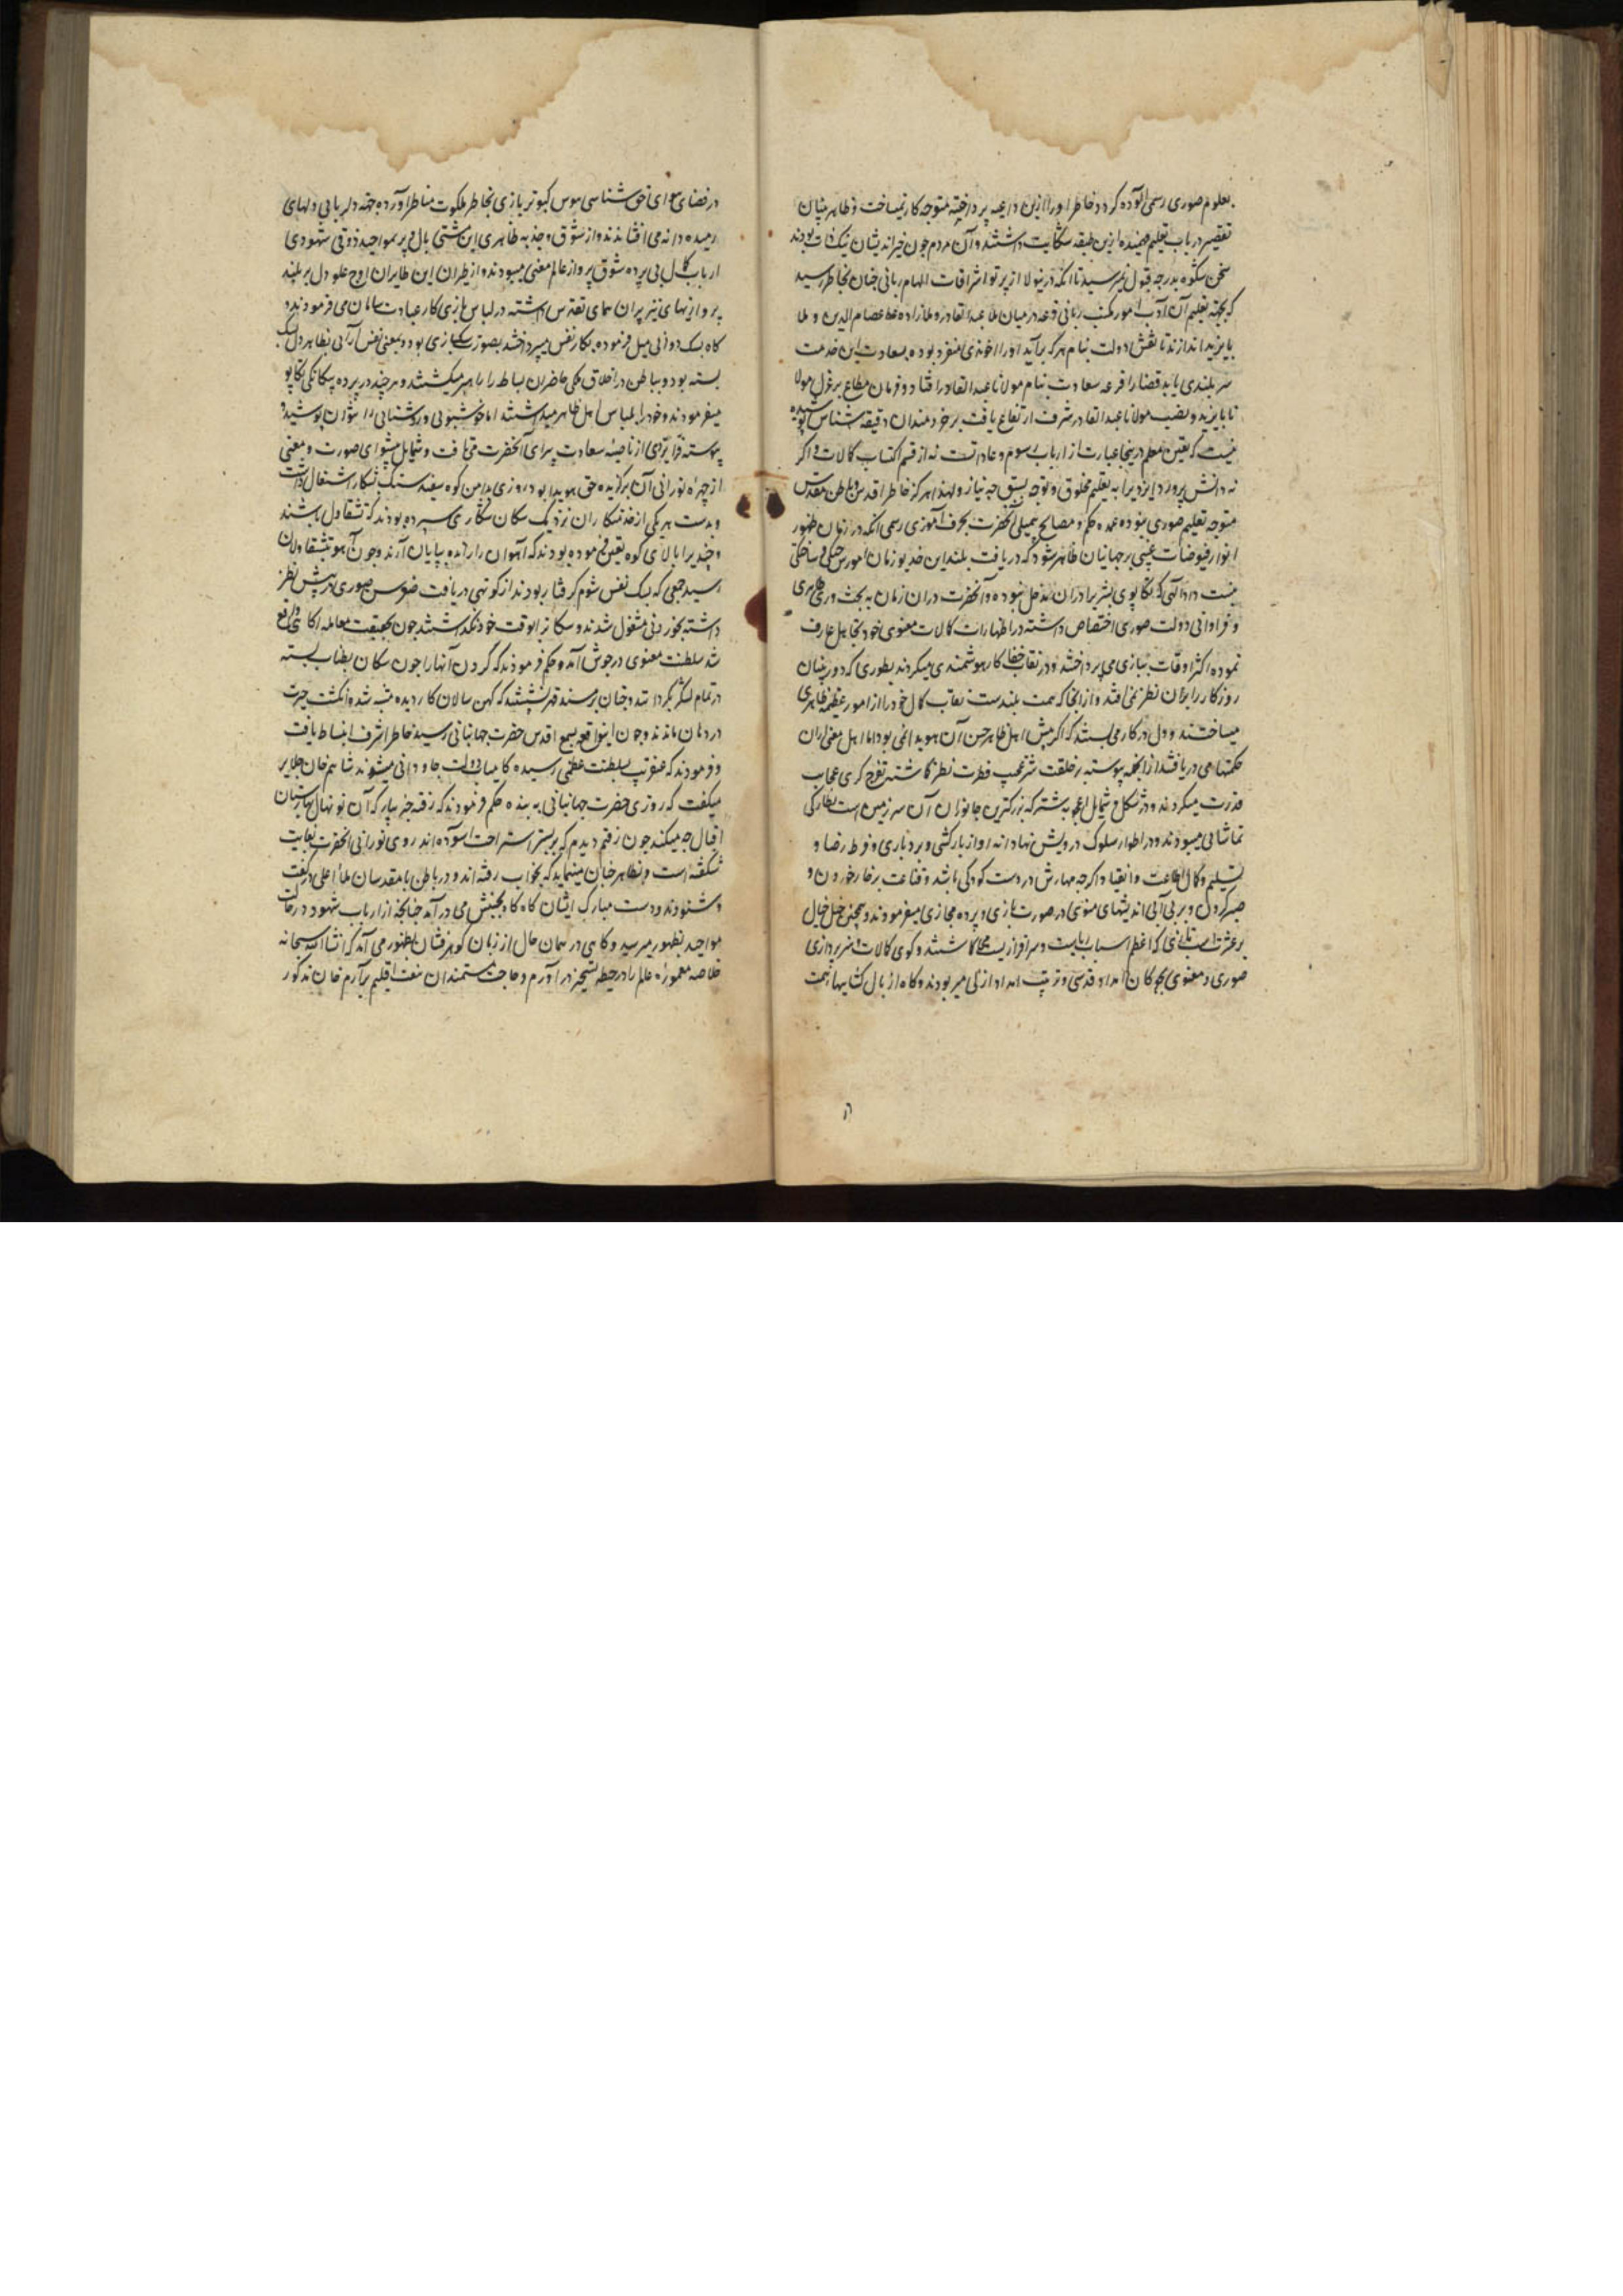 بعلوم صوری رسمی آلوده گردد خاطر اورا ازین داعیه پرداخته متوجه کار نمیساخت و ظاهر بینان
تقصیر در باب تعلیم فهمیده ازین طبقه شکایت داشتند و آن مردم چون خیراندیشان نیک ذات بودند
سخن شکوه بدرجه قبول نمیرسید تا آنکه درینولا از پرتو اشراقات الهام ربانی چنان بخاطر رسید
که بجهة تعلیم آن ادب آموز مکتب ربانی قرعه در میان ملا عبد القادر و ملازاده ملا عصام الدین و ملا
بایزید اندازند تا نقش دولت بنام هر که برآید اورا اخوندی منفرد بوده بسعادت این خدمت
سربلندی یابد قضا را قرعه سعادت بنام مولانا عبد القادر افتاد و فرمان مطاع بر عزل مولا
نا بایزید و نصب مولانا عبد القادر شرف ارتفاع یافت بر خردمندان دقیقه شناس پوشیده
نیست که تعین معلم درینجا عبارت از ارباب رسوم و عادات است نه از قسم اکتساب کمالات و اگر
نه دانش پرورد ایزدیرا به تعلیم مخلوق و توجه بسبق چه نیاز ولهذا هرگز خاطر اقدس و باطن مقدس
متوجه تعلیم صوری نبوده عمده حکم و مصالح بیمیلی آنحضرت بحرف آموزی رسمی آنکه در زمان ظهور
انوار فیوضات غیبی بر جهانیان ظاهر شود که دریافت بلند این خدیو زمان آموزشی و ساختگی
نیست دادالهی که تکاپوی بشریرا دران مدخل نبوده و آنحضرت دران زمان به بخت وری ظاهری
و فراوانی دولت صوری اختصاص داشته در اظهارات کمالات معنوی خود تجاهل عارف
نموده اکثر اوقات ببازی می پرداختند و در نقاب خفا کار هوشمندی میکردند بطوری که دوربینان
روزگار را بران نظر نمی افتد و از آنجا که همت بلندست نقاب کمال خود را از امور عظیمه ظاهری
میساختند و دل در کار می بستند که اگر پیش اهل ظاهر حسن آن هویدا نمی بود اما اهل معنی ازان
حکمتها می دریافتند از آنجمله پیوسته بر خلقت شتر عجیب فطرت نظر گماشته تفرج گری عجایب
قدرت میکردند و در شکل و شمایل اعجوبه شتر که بزرگترین جانوران آن سرزمین است نظارگی
تماشائی میبودند و در اطوار سلوک درویش نهادانه او از بارکشی و بردباری و فرط رضا و
تسلیم و کمال اطاعت و انقیاد اگرچه مهارش در دست کودکی باشد و قناعت بر خار خوردن و
صبر کردن و بر بی آبی اندیشهای معنوی در صورت بازی و پرده مجازی میفرمودند و همچنین خیل خیال
بر عشرت اسب تازی که اعظم اسباب ابهت و سرافرازیست میگماشتند و گوی کمالات و هنرپردازی
صوری و معنوی بچوگان امداد قدسی و تربیت امداد ازلی میربودند و گاه از بال گشائیها همت
در فضای هوای حق شناسی هوس کبوتربازی بخاطر ملکوت مناظر آورده بجهة دلربائی دلهای
رمیده دانه می افشاندند و از شوق و جذبه ظاهری این مشتی بال و پر بمواجید ذوقی شهودی
ارباب کمال بی پرده شوق پرواز عالم معنی میبودند و از طیران این طایران اوج علو دل بر بلند
پروازیهای تیزپران سمای تقدس داشته در لباس بازی کار عبادت سامان می فرمودند و
گاه بسک دوانی میل فرموده بکار نفس میپرداختند بصورت سکبازی بود و بمعنی نفس آرائی بظاهر دل بسک
بسته بود و بباطن در اخلاق ملکی حاضران بساط را راهبر میکشتند و هر چند در پرده بیگانگی تکاپو
میفرمودند و خود را بلباس اهل ظاهر میداشتند اما خوشبوئی و روشنائی را نتوان پوشید و
پیوسته فر ایزدی از ناصیه سعادت پیرای آنحضرت می تافت و شمایل پیشوای صورت و معنی
از چهره نورانی آن برگزیده حق هویدا بود روزی بدامن کوه سفید سنگ بشکار اشتغال داشت
و بدست هر یکی از خدمتکاران نزدیک سکان شکاری سپرده بودند که تشقاول باشند
و چندیرا بالای کوه تعین فرموده بودند که آهوان را رانده بپایان آرند و چون آهو بتشقاولان
رسید جمعی که بسک نفس شوم گرفتار بودند از کوتهی دریافت خورد سن صوری در پیش نظر
داشته بخوردنی مشغول شدند و سکانرا بوقت خود نگذاشتند چون بحقیقت معامله آگاهی واقع
شد سلطنت معنوی در جوش آمد و حکم فرمودند که گردن آنها را چون سکان بطناب بسته
در تمام لشکر بگردانند و چنان بر مسند قهر نشستند که کهن سالان کار دیده متنبه شده انگشت حیرت
در دهان ماندند و چون اینواقعه بسمع اقدس حضرت جهانبانی رسید خاطر اشرف انبساط یافت
و فرمودند که عنقریب بسلطنت عظمی رسیده کامیاب دولت جاودانی میشوند شاهم خان جلایر
میگفت که روزی حضرت جهانبانی به بنده حکم فرمودند که رفته خبر بیار که آن نونهال بهارستان
اقبال چه میکند چون رفتم دیدم که بر بستر استراحت آسوده اند روی نورانی آنحضرت بغایت
شکفته است و بظاهر چنان مینماید که بخواب رفته اند و در باطن با مقدسان ملأ اعلی در گفت
و شنودند و دست مبارک ایشان گاه گاه بجنبش می در آمد چنانچه از ارباب شهود در حالت
مواجید بظهور میرسید و گاهی در همان حال از زبان گوهرفشان بظهور می آمد که انشاالله سبحانه
خلاصه معموره عالم را در حیطه تسخیر در آورم و حاجت مستمندان هفت اقلیم برآرم خان مذکور